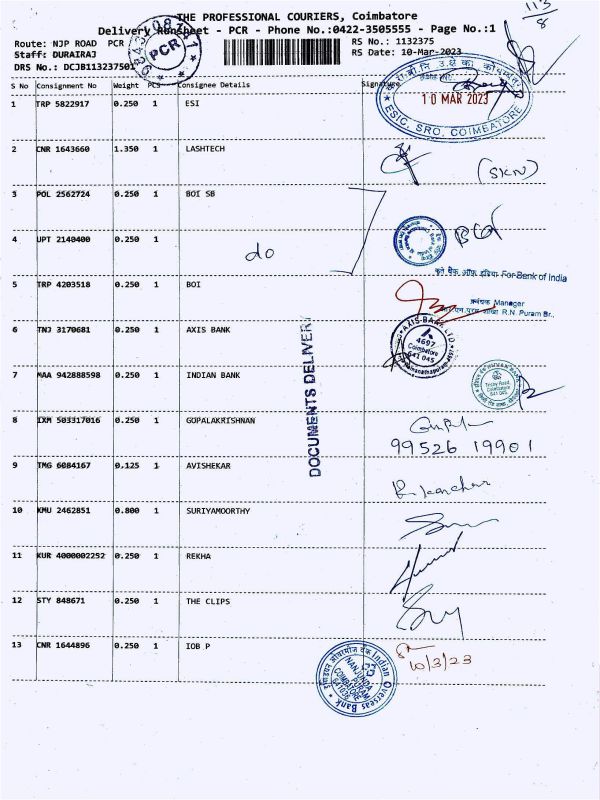 113
8
THE PROFESSIONAL COURIERS, Coimbatore
Delivery Runsheet - PCR - Phone No.:0422-3505555 - Page No.:1
Route: NJP ROAD PCR
RS No.: 1132375
Staff: DURAIRAJ
RS Date: 10-Mar-2023
DRS No.: DCJB113237501
PCR
S No Consignment No Weight PCS Consignee Details Signature
1 TRP 5822917 0.250 1 ESI
10 MAR 2023
ESIC, SRO, COIMBATORE
2 CNR 1643660 1.350 1 LASHTECH
(SKN)
3 POL 2562724 0.250 1 BOI SB
4 UPT 2140400 0.250 1
do
कृते बैंक ऑफ़ इंडिया For Bank of India
5 TRP 4203518 0.250 1 BOI
Manager
R.N. Puram Br.,
6 TNJ 3170681 0.250 1 AXIS BANK
AXIS BANK LTD
4697
Coimbatore
641 045
DOCUMENTS DELIVERY
7 MAA 942888598 0.250 1 INDIAN BANK
8 IXM 503317016 0.250 1 GOPALAKRISHNAN
99526 19901
9 TMG 6084167 0.125 1 AVISHEKAR
10 KMU 2462851 0.800 1 SURIYAMOORTHY
11 KUR 4000002252 0.250 1 REKHA
12 STY 848671 0.250 1 THE CLIPS
13 CNR 1644896 0.250 1 IOB P
Indian Overseas Bank
NANJUNDA
PURAM
COIMBATORE
641036
10/3/23